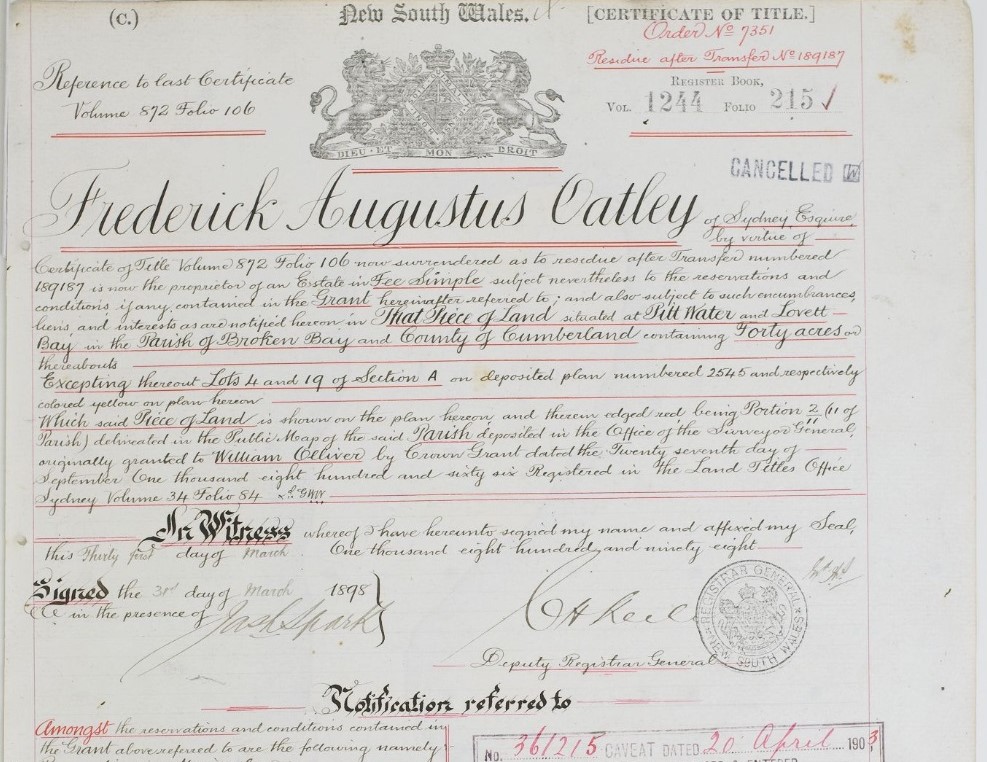 (C.)
New South Wales.
[CERTIFICATE OF TITLE.]
Order No 7351
Residue after Transfer No 189187
Reference to last Certificate
Volume 872 Folio 106
REGISTER BOOK,
VOL. 1244 FOLIO 215
DIEU·ET MON DROIT
CANCELLED
Frederick Augustus Oatley of Sydney Esquire
by virtue of
Certificate of Title Volume 872 Folio 106 now surrendered as to residue after Transfer numbered
189187 is now the proprietor of an Estate in Fee Simple subject nevertheless to the reservations and
conditions if any, contained in the Grant hereinafter referred to; and also subject to such encumbrances,
liens, and interests as are notified hereon in That Piece of Land situated at Pitt Water and Lovett
Bay in the Parish of Broken Bay and County of Cumberland containing Forty acres or
thereabouts
Excepting thereout Lots 4 and 19 of Section A on deposited plan numbered 2545 and respectively
colored yellow on plan hereon
Which said Piece of Land is shown on the plan hereon, and therein edged red, being Portion 2 (11 of
Parish) delineated in the Public Map of the said Parish deposited in the Office of the Surveyor General,
originally granted to William Olliver by Crown Grant dated the Twenty seventh day of
September One thousand eight hundred and sixty six Registered in the Land Titles Office
Sydney Volume 34 Folio 84
In Witness whereof I have hereunto signed my name and affixed my Seal,
this Thirty first day of March One thousand eight hundred and ninety eight
Signed the 31st day of March 1898
in the presence of
Deputy Registrar General
REGISTRAR GENERAL
NEW SOUTH WALES
Notification referred to
Amongst the reservations and conditions contained in
the Grant above referred to are the following namely
No. 361215 CAVEAT DATED 20 April 1903